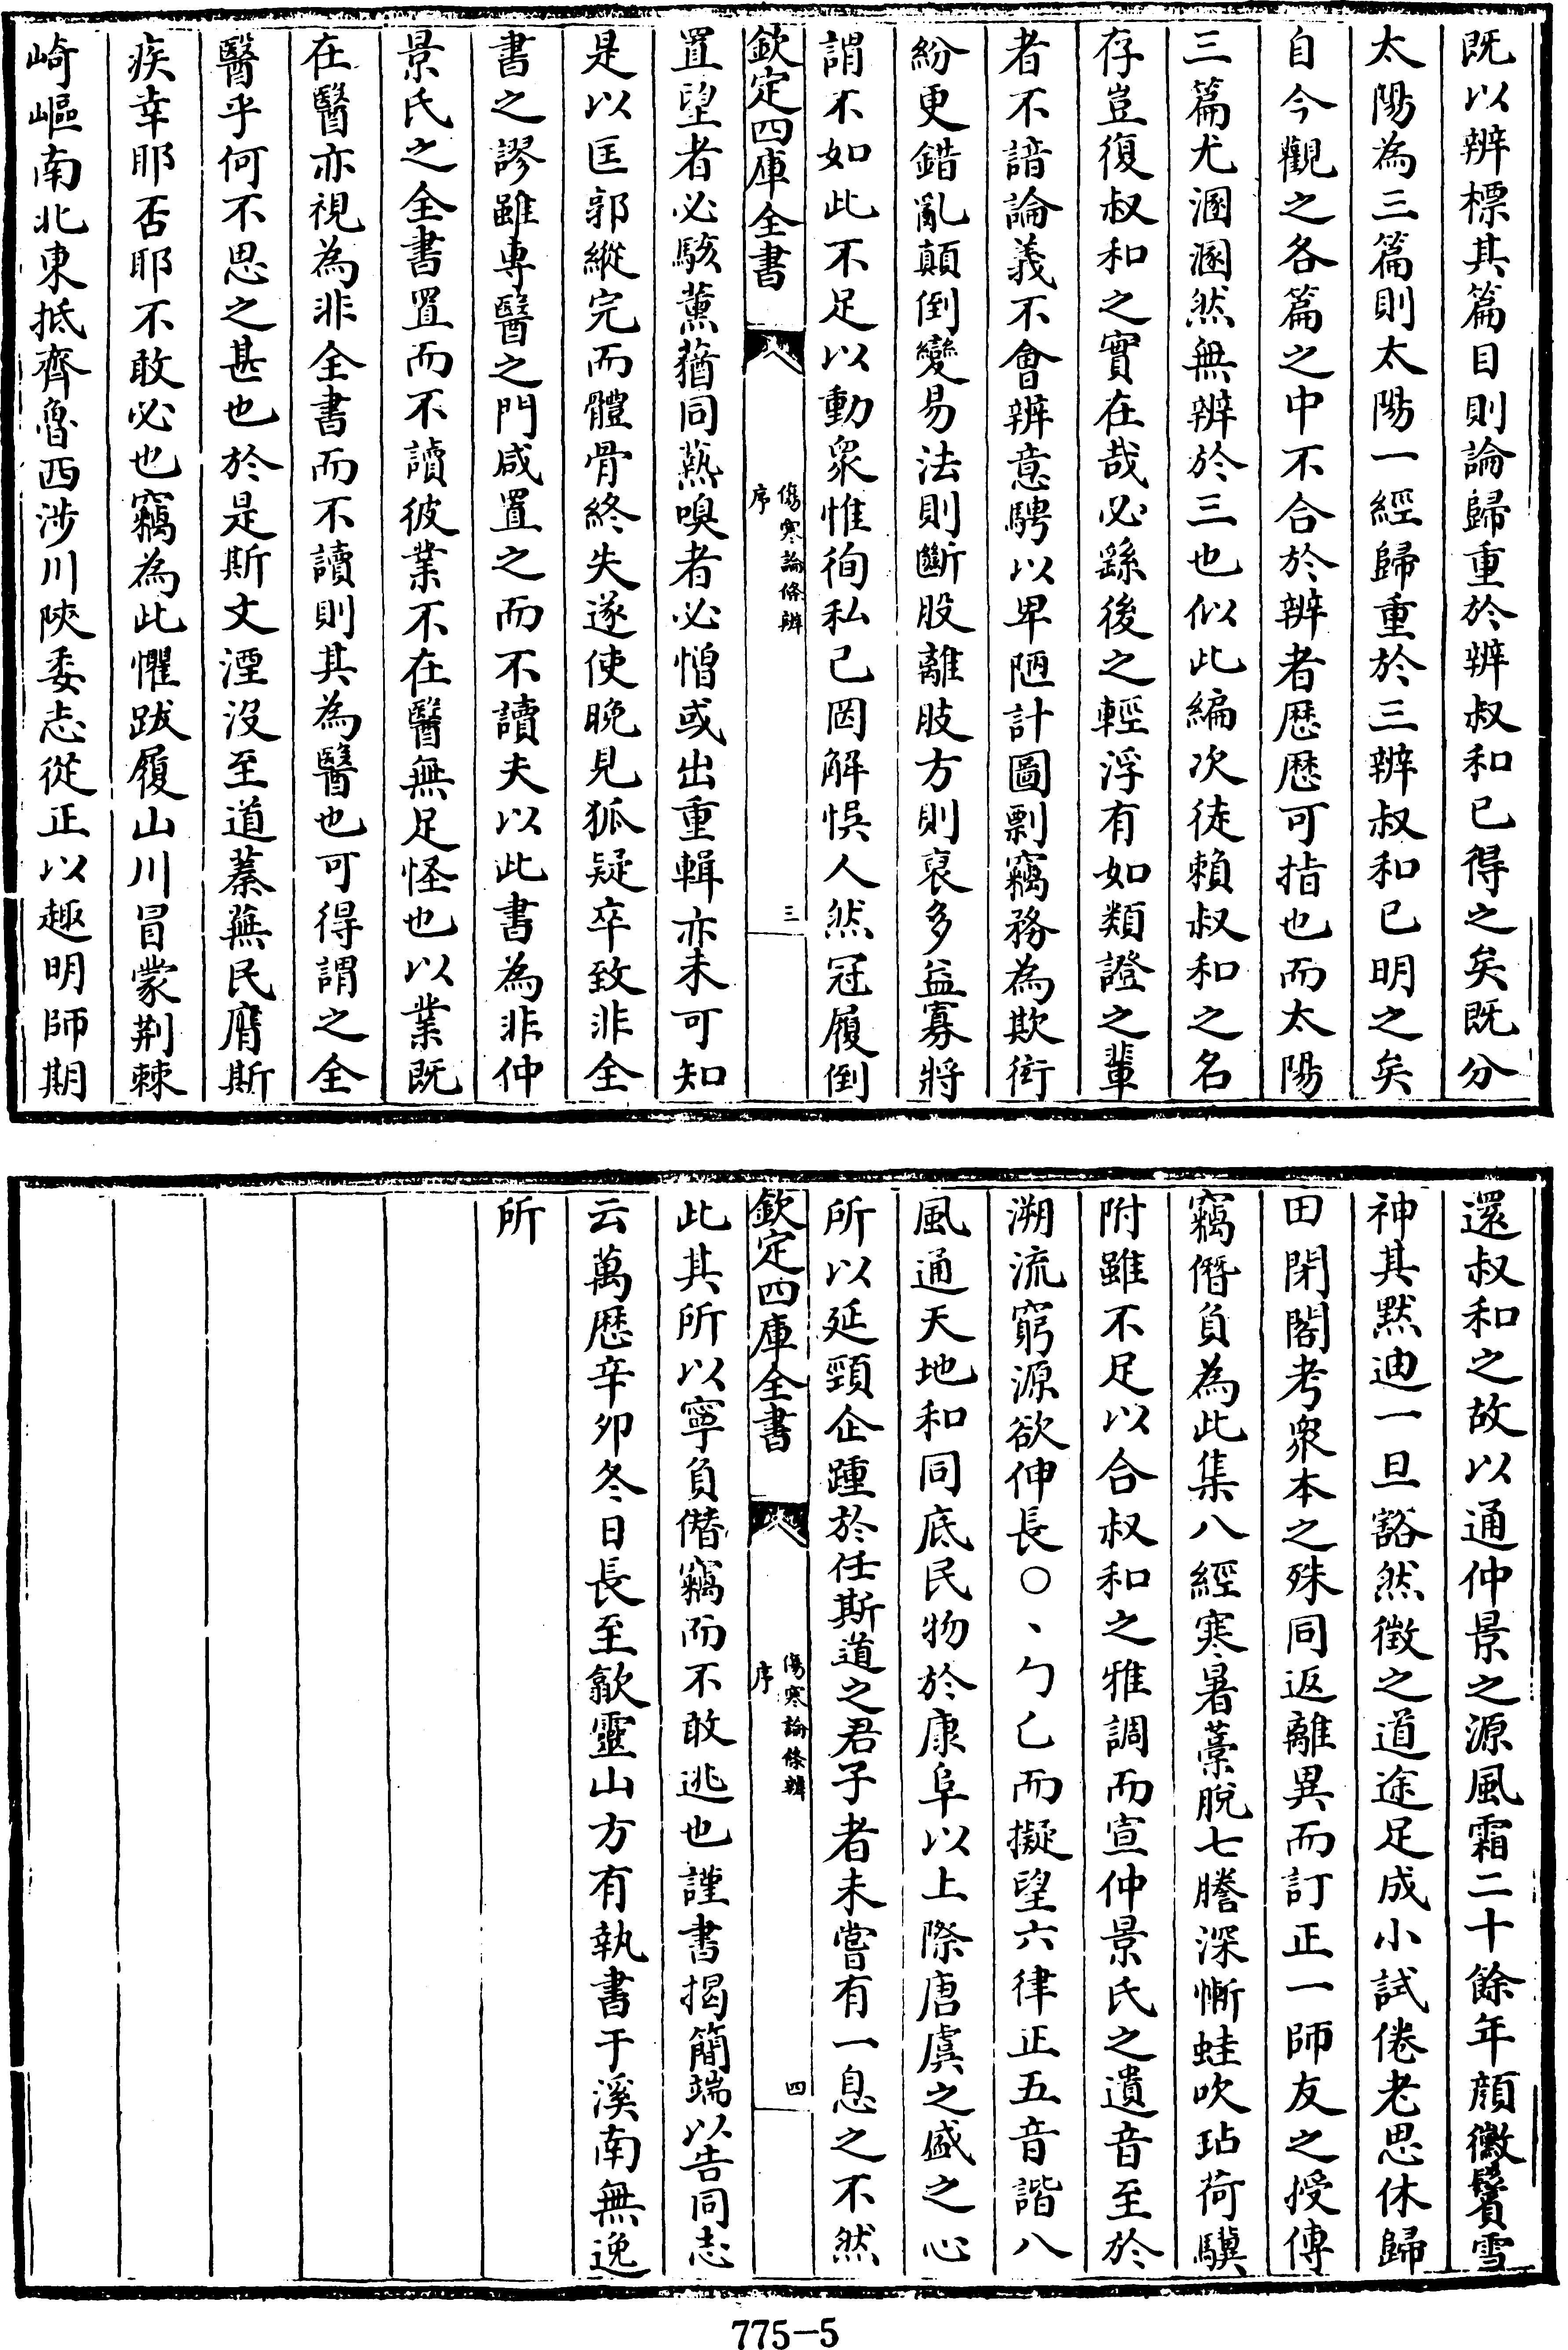 既以辨標其篇目則論歸重於辨叔和已得之矣既分
太陽為三篇則太陽一經歸重於三辨叔和已明之矣
自今觀之各篇之中不合於辨者歴歴可指也而太陽
三篇尤溷溷然無辨於三也似此編次徒賴叔和之名
存豈復叔和之實在哉必繇後之輕浮有如類證之輩
者不諳論義不會辨意騁以卑陋計圖剽竊務為欺衒
紛更錯亂顛倒變易法則斷股離肢方則裒多益寡將
謂不如此不足以動衆惟徇私己罔解悞人然冠履倒
欽定四庫全書
傷寒論條辨
序
三
置望者必駭薰蕕同爇嗅者必憎或出重輯亦未可知
是以匡郭縱完而體骨終失遂使晚見狐疑卒致非全
書之謬雖專醫之門咸置之而不讀夫以此書為非仲
景氏之全書置而不讀彼業不在醫無足怪也以業既
在醫亦視為非全書而不讀則其為醫也可得謂之全
醫乎何不思之甚也於是斯文湮沒至道蓁蕪民膺斯
疾幸耶否耶不敢必也竊為此懼跋履山川冒蒙荆棘
崎嶇南北東抵齊魯西涉川陜委志從正以趣明師期
還叔和之故以通仲景之源風霜二十餘年顔黴鬢雪
神其黙迪一旦豁然徴之道途足成小試倦老思休歸
田閉閣考衆本之殊同返離異而訂正一師友之授傳
竊僭負為此集八經寒暑藁脫七謄深慚蛙吹玷荷驥
附雖不足以合叔和之雅調而宣仲景氏之遺音至於
溯流窮源欲伸長○丶勹乚而擬望六律正五音諧八
風通天地和同底民物於康阜以上際唐虞之盛之心
所以延頸企踵於任斯道之君子者未嘗有一息之不然
欽定四庫全書
傷寒論條辨
序
四
此其所以寧負僭竊而不敢逃也謹書揭簡端以告同志
云萬歴辛卯冬日長至歙靈山方有執書于溪南無逸
所
775-5